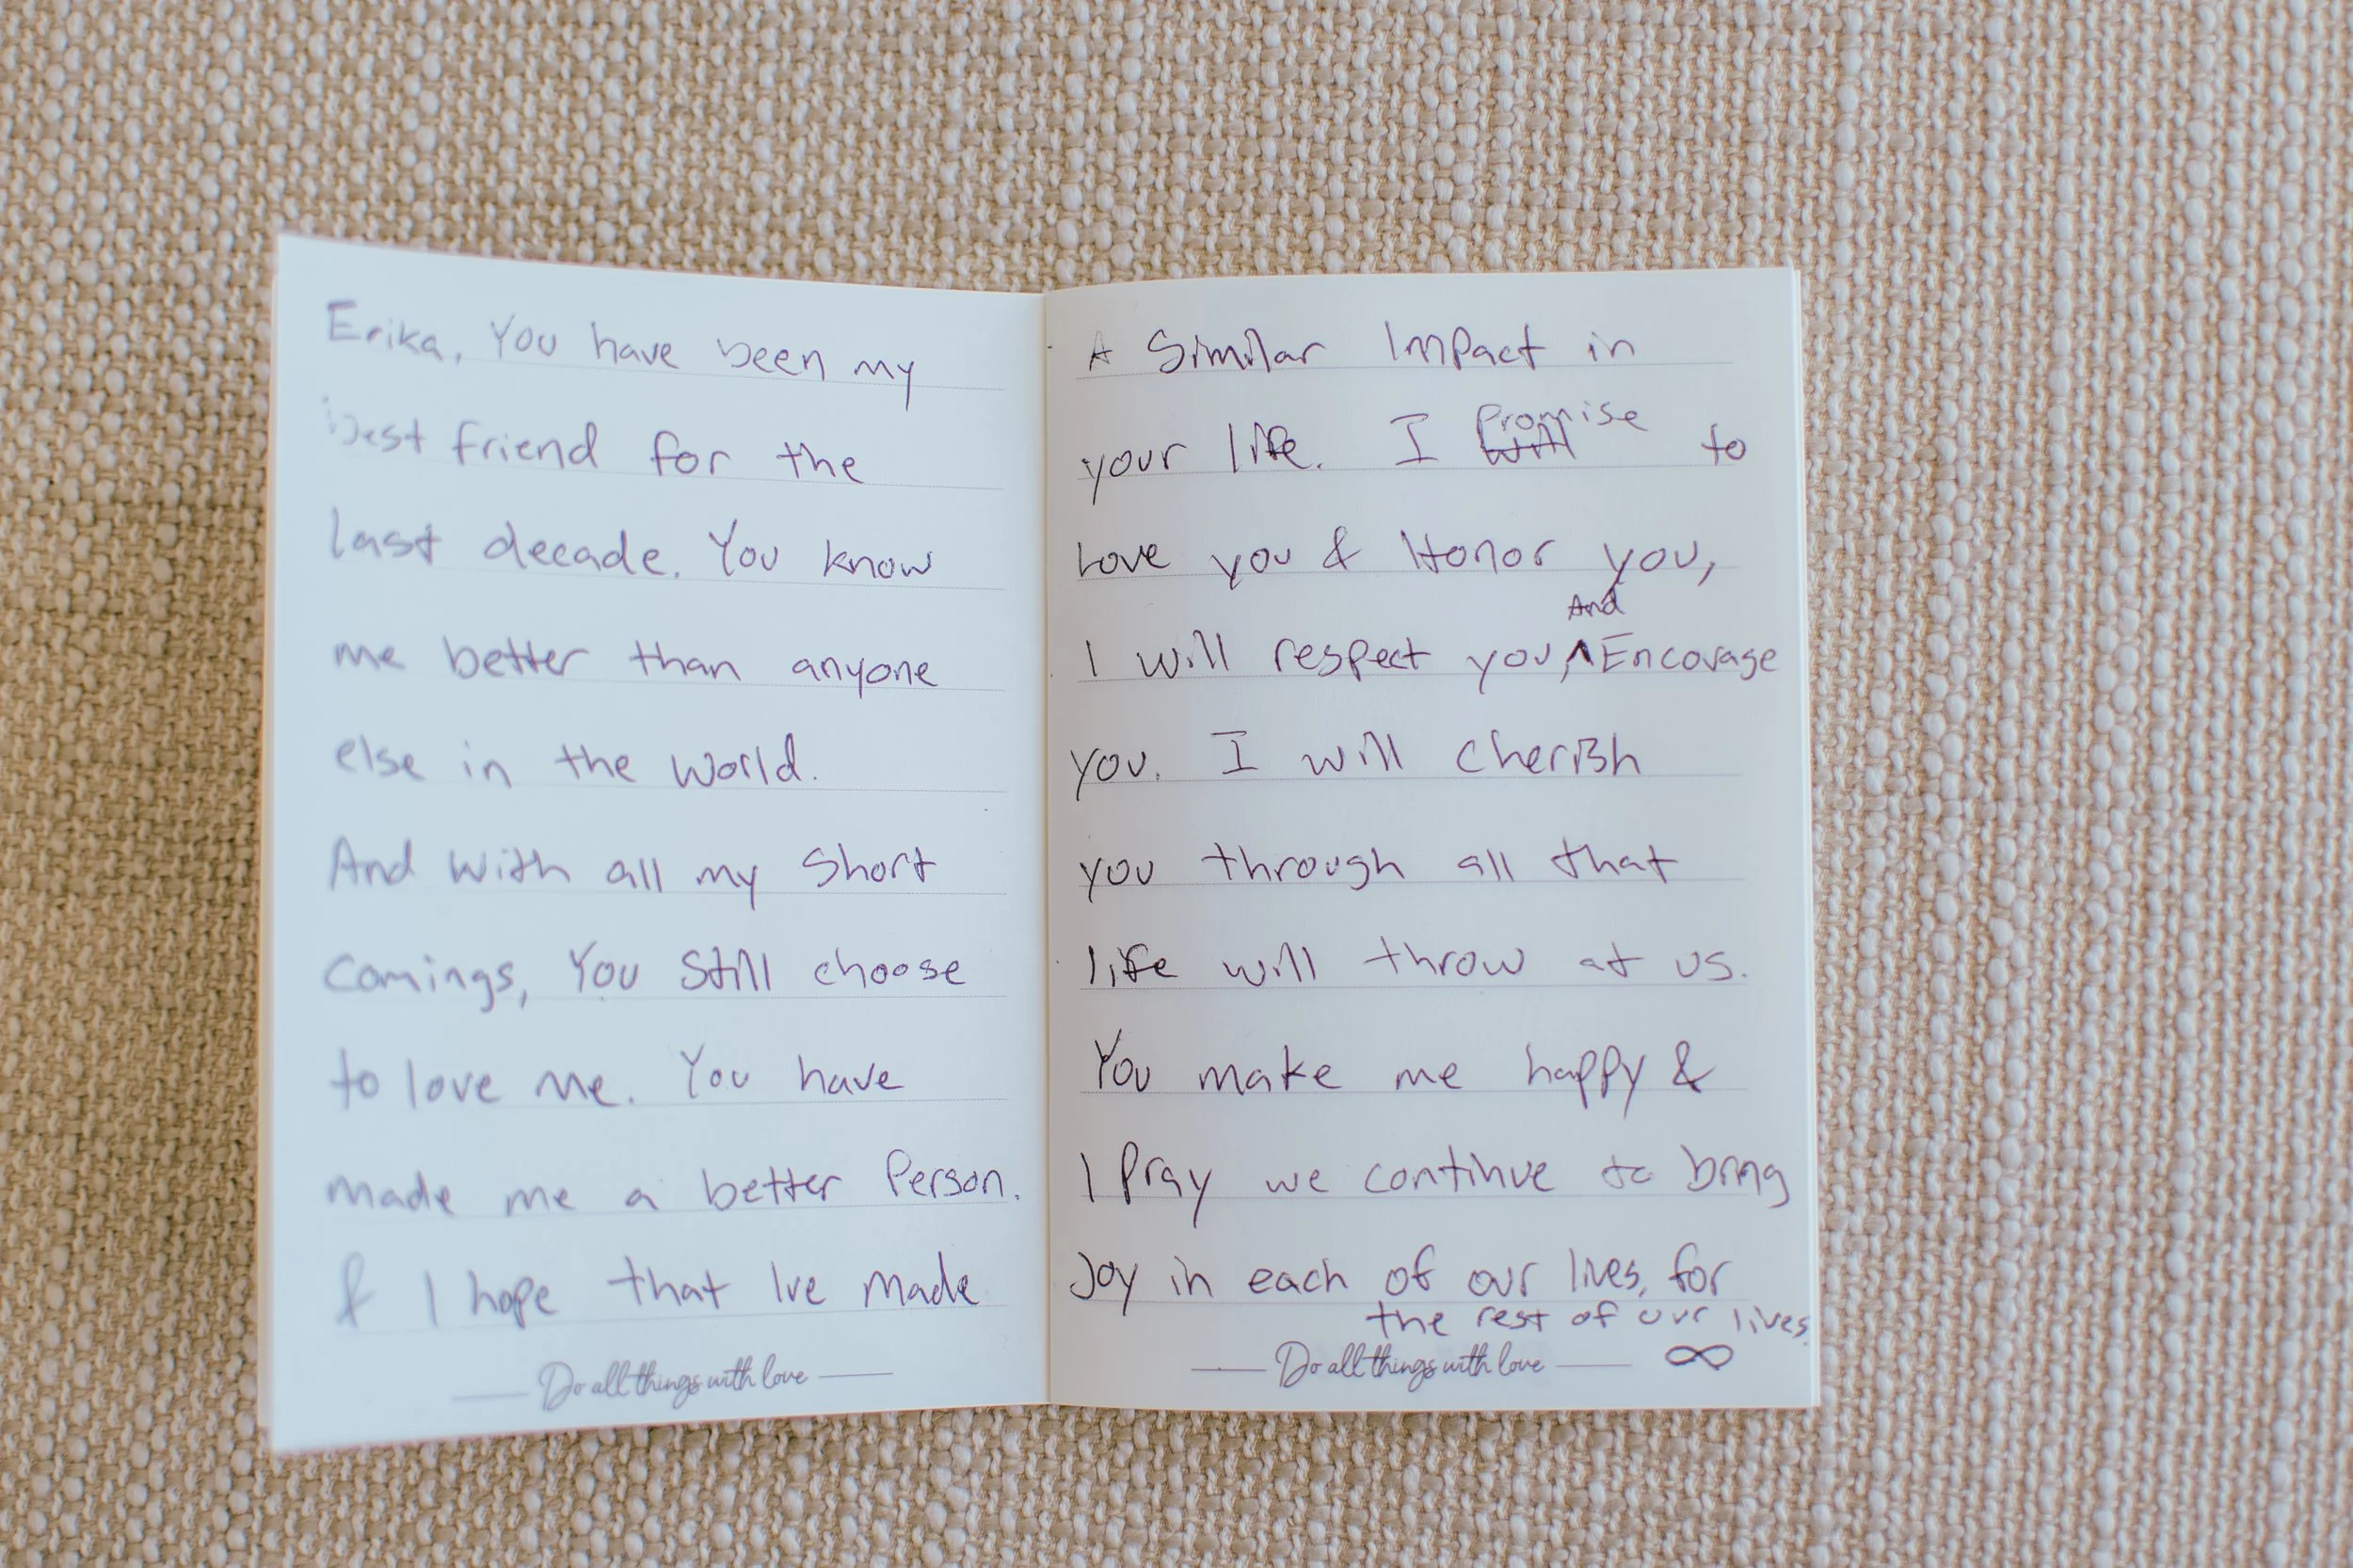 Erika, You have been my
best friend for the
last decade. You know
me better than anyone
else in the world.
And with all my short
comings, You still choose
to love me. You have
made me a better Person.
& I hope that Ive made
Do all things with love
A Similar Impact in
your life. I will Promise to
Love you & Honor you,
And
I will respect you, ^ Encourage
you. I will cherish
you through all that
life will throw at us.
You make me happy &
I Pray we continue to bring
Joy in each of our lives, for
the rest of our lives.
Do all things with love ∞